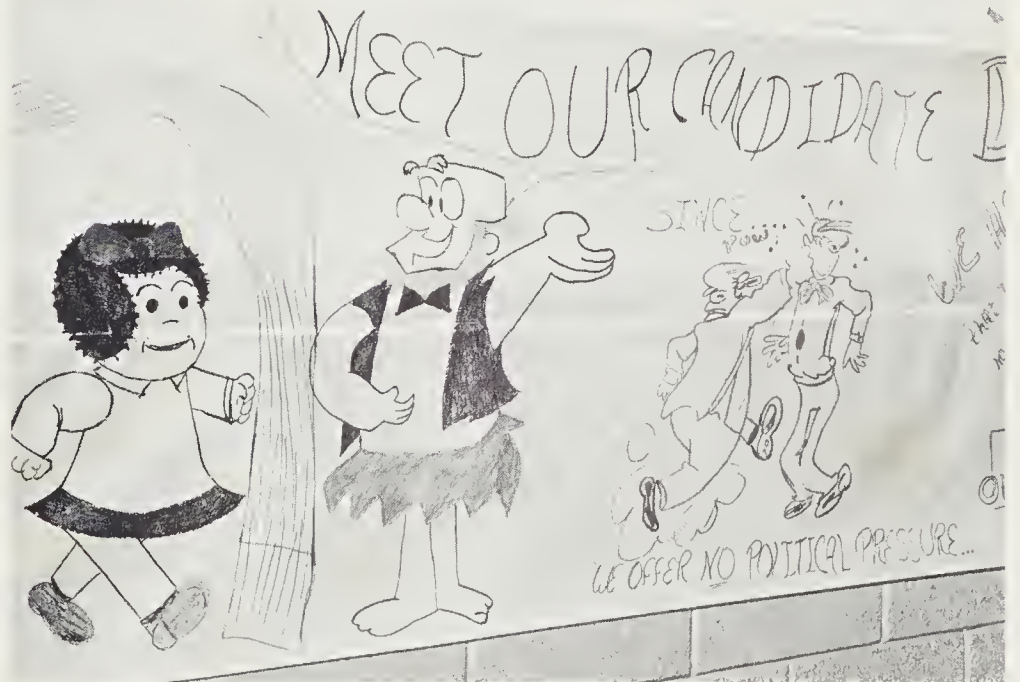 MEET OUR CANDIDATE D
SINCE...
POW!
WE OFFER NO POLITICAL PRESSURE...